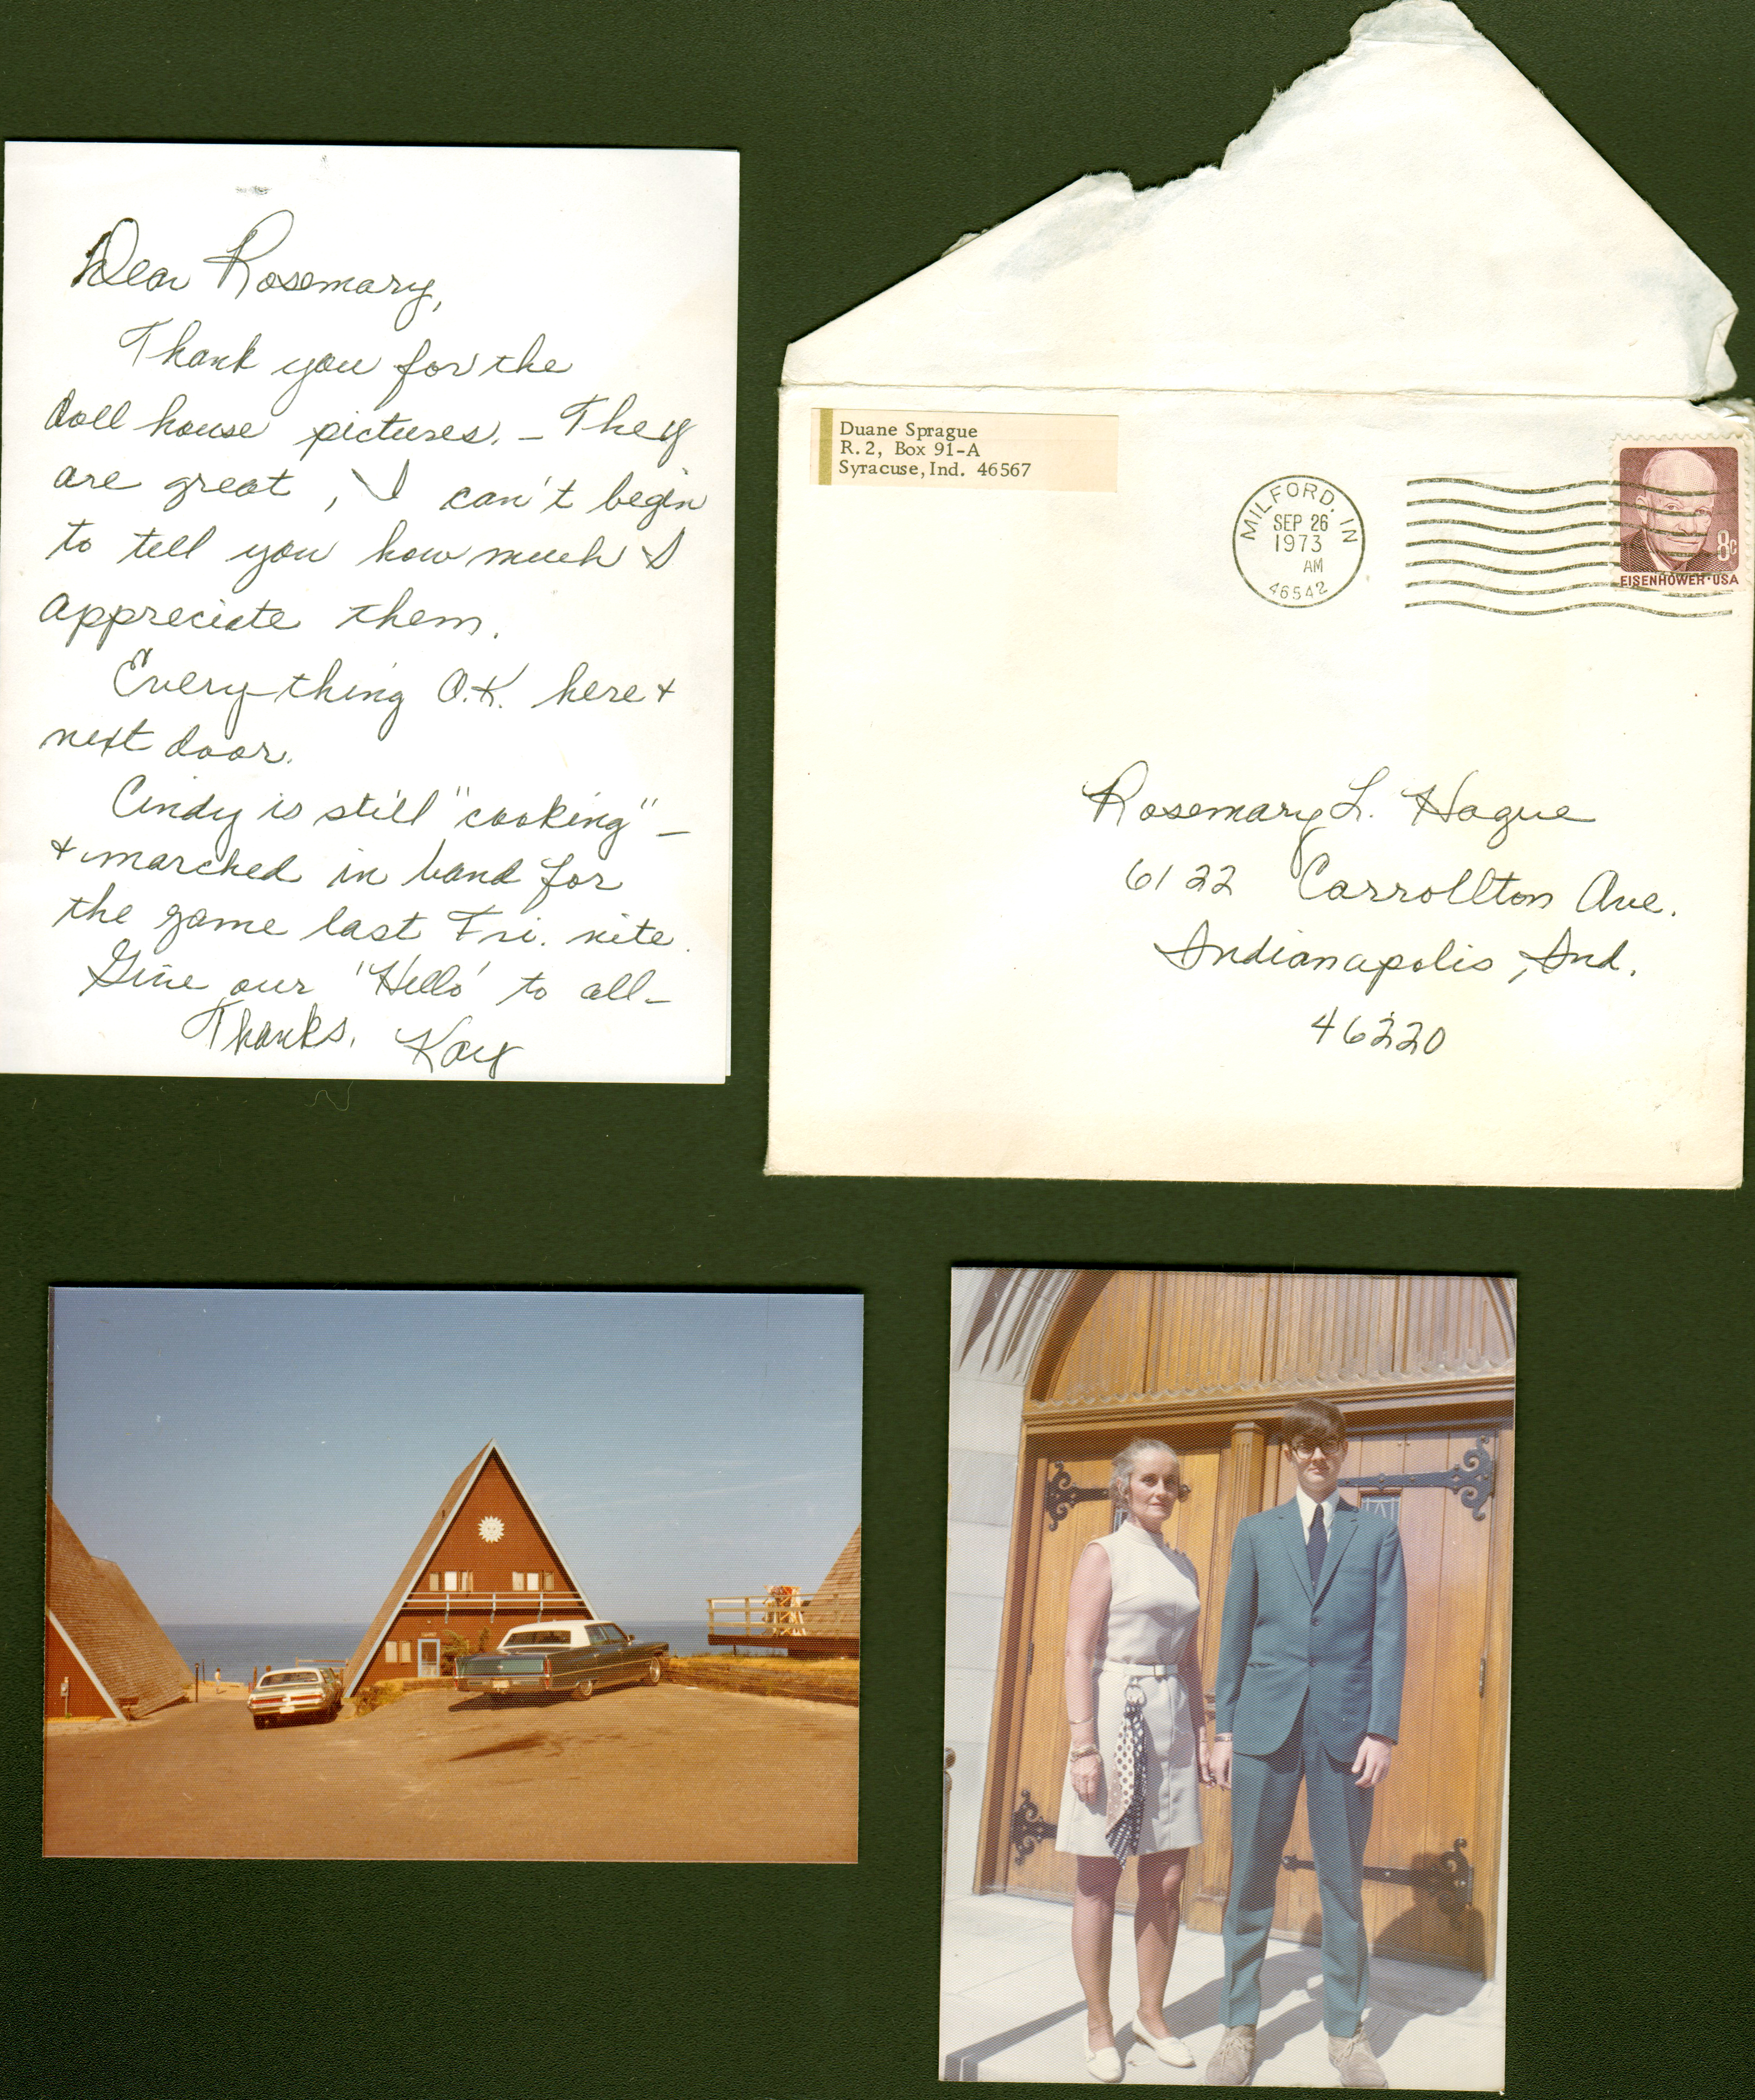 Dear Rosemary,
Thank you for the
doll house pictures. – They
are great, I can't begin
to tell you how much I
appreciate them.
Every-thing O.K. here +
next door.
Cindy is still "cooking" –
+ marched in band for
the game last Fri. nite.
Give our 'Hello' to all –
Thanks. Kay
Duane Sprague
R. 2, Box 91-A
Syracuse, Ind. 46567
MILFORD, IN
SEP 26
1973
AM
46542
8c
EISENHOWER·USA
Rosemary L. Hague
6122 Carrollton Ave.
Indianapolis, Ind.
46220